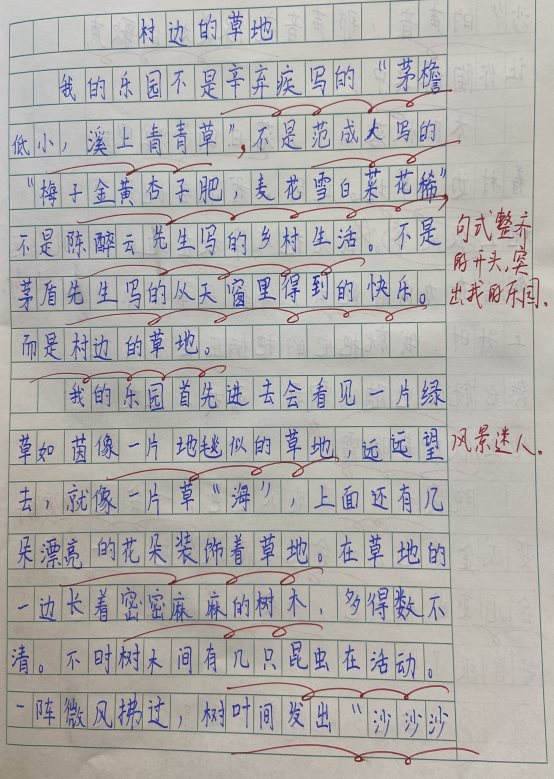 村边的草地
我的乐园不是辛弃疾写的“茅檐
低小，溪上青青草”，不是范成大写的
“梅子金黄杏子肥，麦花雪白菜花稀”
不是陈醉云先生写的乡村生活。不是
茅盾先生写的从天窗里得到的快乐。
而是村边的草地。
句式整齐
的开头，突
出我的乐园。
我的乐园首先进去会看见一片绿
草如茵像一片地毯似的草地，远远望
去，就像一片草“海”，上面还有几
朵漂亮的花朵装饰着草地。在草地的
一边长着密密麻麻的树木，多得数不
清。不时树木间有几只昆虫在活动。
一阵微风拂过，树叶间发出“沙沙沙
风景迷人。